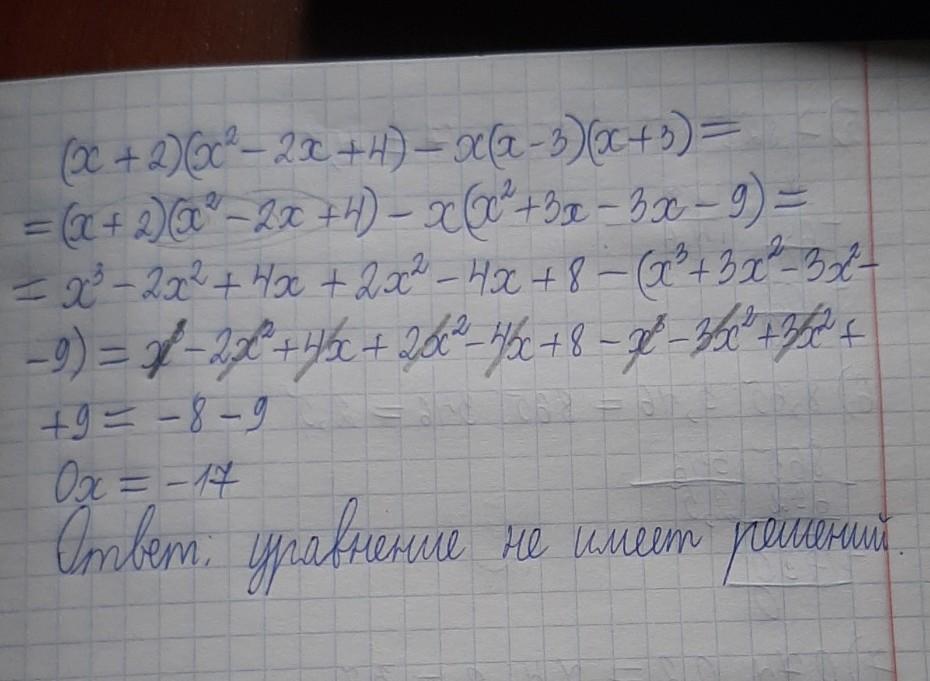 (x + 2)(x² - 2x + 4) - x(x - 3)(x + 3) =
= (x + 2)(x² - 2x + 4) - x(x² + 3x - 3x - 9) =
= x³ - 2x² + 4x + 2x² - 4x + 8 - (x³ + 3x² - 3x² -
- 9) = x³ - 2x² + 4x + 2x² - 4x + 8 - x³ - 3x² + 3x² +
+ 9 = - 8 - 9
0x = - 17
Ответ: уравнение не имеет решений.